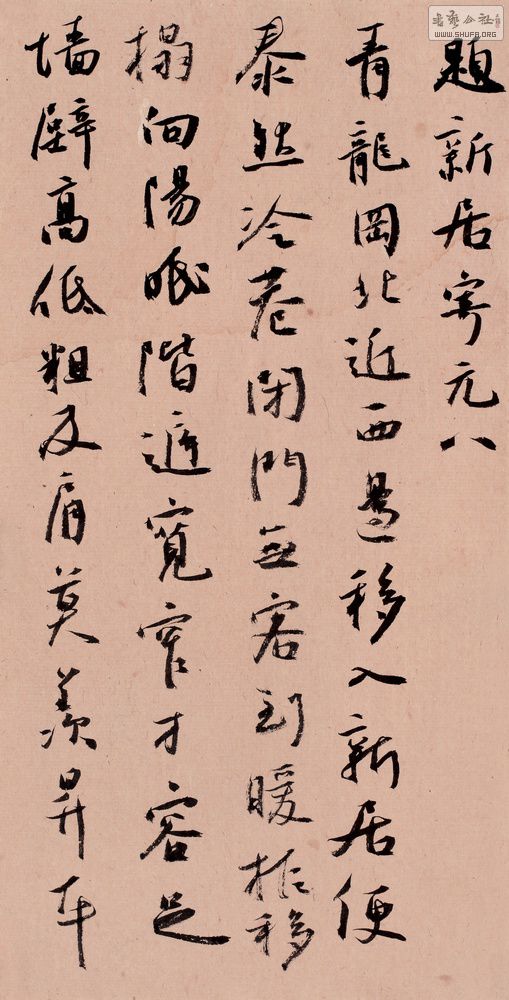 題新居寄元八
青龍岡北近西邊移入新居便
泰然冷巷閉門無客到暖檐移
榻向陽眠階庭寬窄才容足
墙壁高低粗及肩莫羨昇平
書藝公社
WWW.SHUFA.ORG